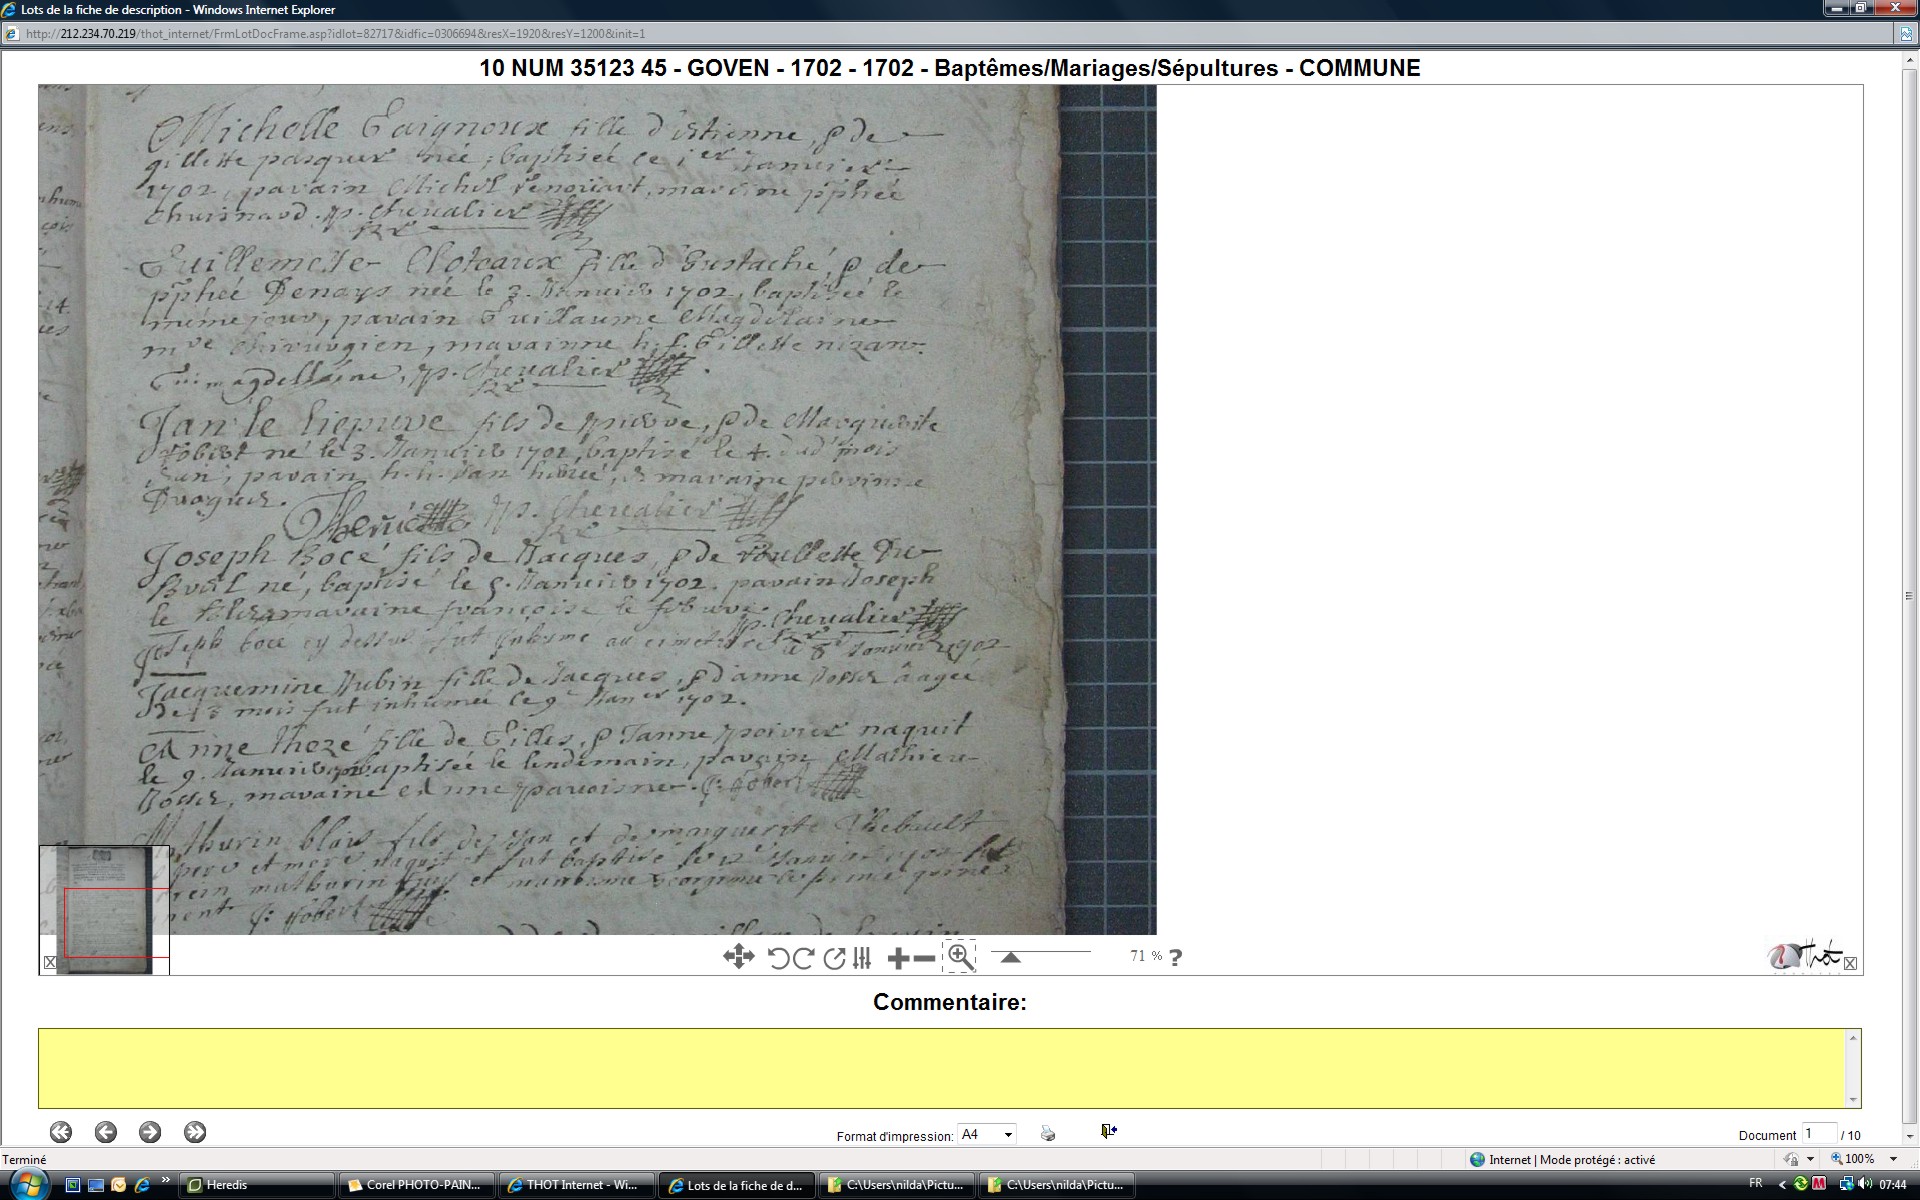 Lots de la fiche de description - Windows Internet Explorer
http://212.234.70.219/thot_internet/FrmLotDocFrame.asp?idlot=82717&idfic=0306694&resX=1920&resY=1200&init=1
10 NUM 35123 45 - GOVEN - 1702 - 1702 - Baptêmes/Mariages/Sépultures - COMMUNE
Michelle fille d'Estienne, & de
gillette pasquer née, baptisée ce 1er Janvier
1702, parain Michel renouart, maraine
p. Chevalier
Guillemette Cloteaux fille d'Eustache, & de
Denays née le 3. Janvier 1702, baptisée le
même jour, parain Guillaume Magdelaine
mre chirurgien, marainne h. f. Gillette
magdellaine, p. Chevalier
Jan le liepuvre fils de & de Marguerite
né le 3. Janvier 1702, baptisé le 4. dud mois
parain h. h. Jan & maraine perinne
Droguet.
p. Chevalier
Joseph bocé fils de Jacques, & de
né, baptisé le 5. Janvier 1702. parain Joseph
le maraine françoise le
p. Chevalier
Joseph boce cy dessus fut inhumé au cimetiere 8 Janvier 1702
Jacquemine Aubin fille de Jacques, & d'anne âagée
De 13 mois fut inhumée le 9e Janer 1702.
Anne thezé fille de Gilles, & Janne poirier naquit
le 9. Janvier baptisée le lendemain, parain Mathieu
maraine Anne paroisne. J: Hobert
Mathurin blais fils de Jan et de marguerite Thebault
pere et mere naquit et fut baptisé le 12e Janvier 1702
mathurin et maraine
J: Hobert
71 % ?
Thot
Commentaire:
Format d'impression: A4
Document 1 / 10
Terminé
Internet | Mode protégé : activé
100%
Heredis
Corel PHOTO-PAIN...
THOT Internet - Wi...
Lots de la fiche de d...
C:\Users\nilda\Pictu...
C:\Users\nilda\Pictu...
FR
07:44